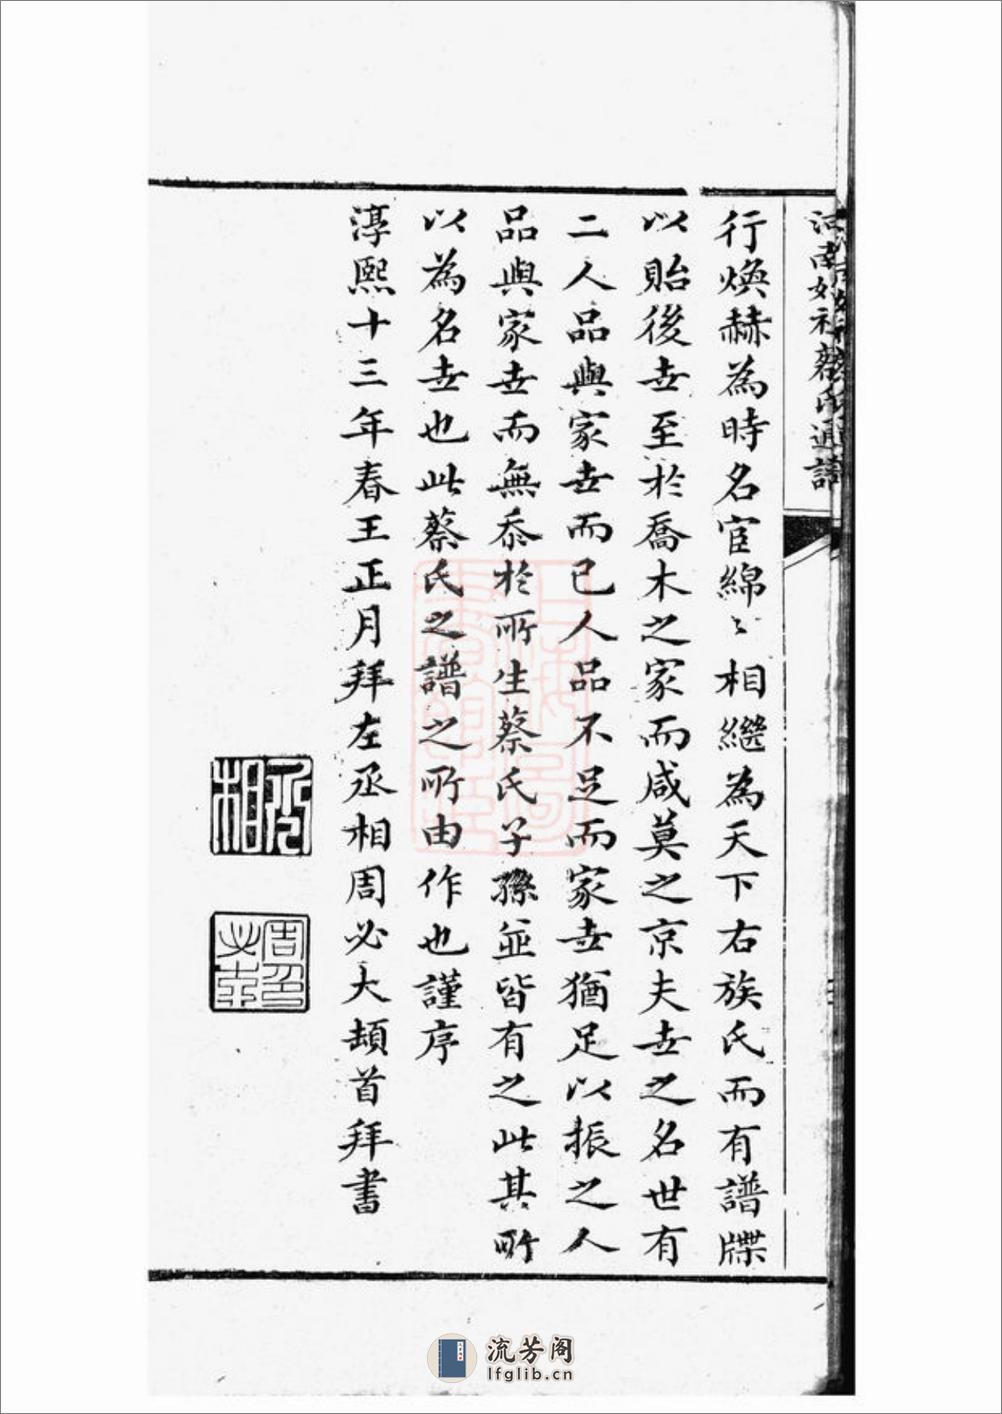 蔡氏通譜
行煥赫為時名宦綿〻相繼為天下右族氏而有譜牒
以貽後世至於喬木之家而咸莫之京夫世之名世有
二人品與家世而已人品不足而家世猶足以振之人
品與家世而無忝於所生蔡氏子孫並皆有之此其所
以為名世也此蔡氏之譜之所由作也謹序
淳熙十三年春王正月拜左丞相周必大頓首拜書
流芳阁
lfglib.cn